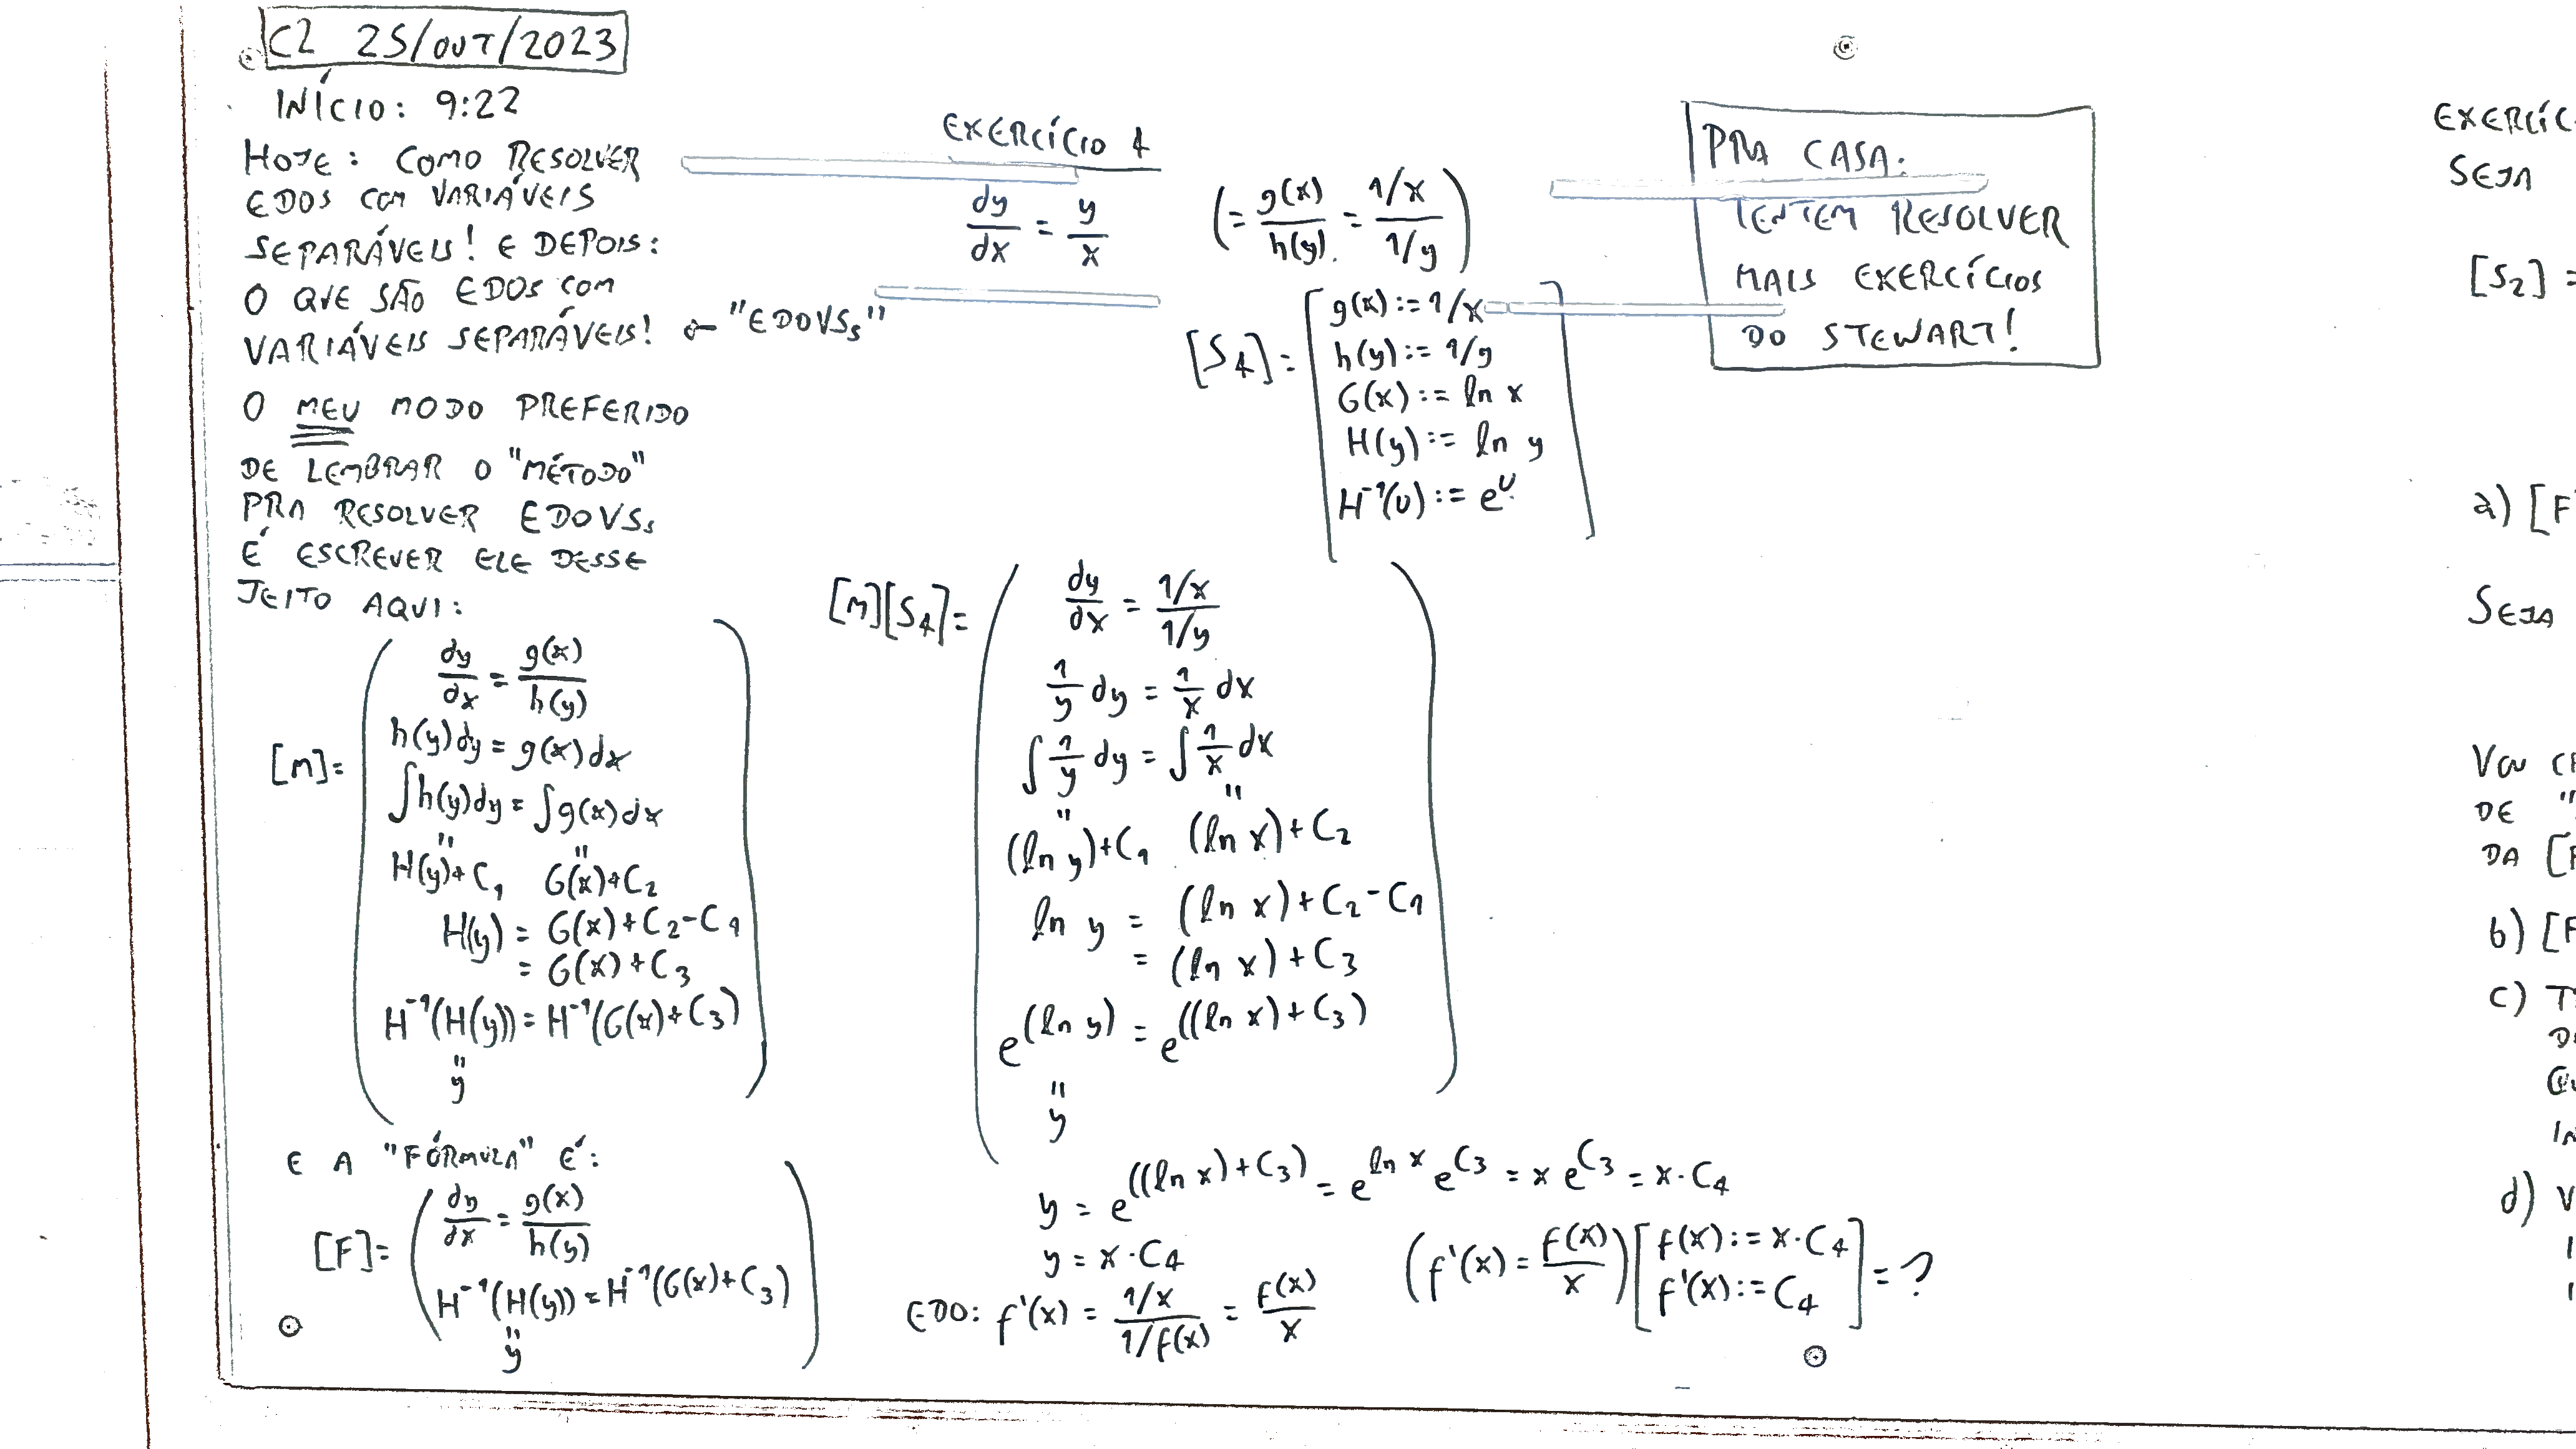 C2 25/OUT/2023
INÍCIO: 9:22
HOJE: COMO RESOLVER
EDOS COM VARIÁVEIS
SEPARÁVEIS! E DEPOIS:
O QUE SÃO EDOS COM
VARIÁVEIS SEPARÁVEIS! ← "EDOVSs"
O MEU MODO PREFERIDO
DE LEMBRAR O "MÉTODO"
PRA RESOLVER EDOVSs
É ESCREVER ELE DESSE
JEITO AQUI:
[M] = ( dy/dx = g(x)/h(y)
h(y)dy = g(x)dx
∫h(y)dy = ∫g(x)dx
" "
H(y)+C₁ G(x)+C₂
H(y) = G(x)+C₂-C₁
= G(x)+C₃
H⁻¹(H(y)) = H⁻¹(G(x)+C₃)
"
y )
E A "FÓRMULA" É:
[F] = ( dy/dx = g(x)/h(y)
H⁻¹(H(y)) = H⁻¹(G(x)+C₃)
"
y )
EXERCÍCIO 4
dy/dx = y/x (= g(x)/h(y) = (1/x)/(1/y))
[S₄] = [ g(x) := 1/x
h(y) := 1/y
G(x) := ln x
H(y) := ln y
H⁻¹(u) := eᵘ ]
[M][S₄] = ( dy/dx = (1/x)/(1/y)
1/y dy = 1/x dx
∫ 1/y dy = ∫ 1/x dx
" "
(ln y)+C₁ (ln x)+C₂
ln y = (ln x)+C₂-C₁
= (ln x)+C₃
e^(ln y) = e^((ln x)+C₃)
"
y )
y = e^((ln x)+C₃) = e^(ln x) e^(C₃) = x e^(C₃) = x·C₄
y = x·C₄
EDO: f'(x) = (1/x)/(1/f(x)) = f(x)/x
(f'(x) = f(x)/x) [ f(x) := x·C₄
f'(x) := C₄ ] = ?
PRA CASA:
TENTEM RESOLVER
MAIS EXERCÍCIOS
DO STEWART!
SEJA
[S₂] =
a) [F
SEJA
VOU
DE "
DA [F
b) [F
c)
d) V